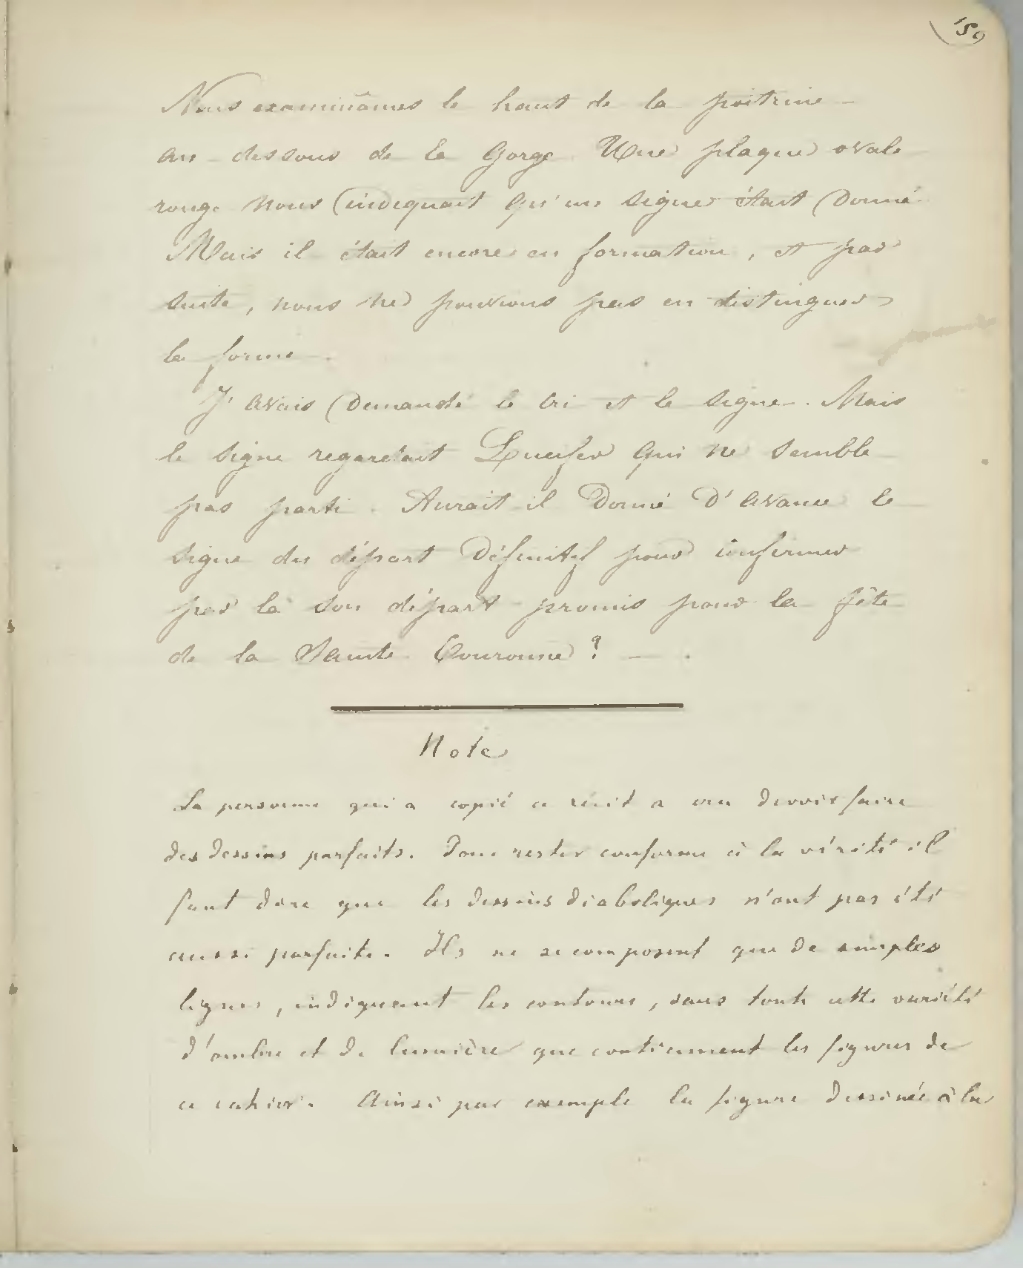 150
Nous examinâmes le haut de la poitrine
au-dessous de la Gorge. Une plaque ovale
rouge nous indiquait qu'un signe était Donné.
Mais il était encore en formation, et par
suite, nous ne pouvions pas en distinguer
la forme.
J'avais Demandé le Cri et le Signe. Mais
le Signe regardait Lucifer qui ne semble
pas parti. Aurait-il Donné D'avance le
signe du départ Définitif pour confirmer
par là son départ promis pour la fête
de la Sainte Couronne ?
Note
La personne qui a copié ce récit a cru devoir faire
des dessins parfaits. Pour rester conforme à la vérité il
faut dire que les dessins diaboliques n'ont pas été
aussi parfaits. Ils ne se composent que de simples
lignes, indiquant les contours, sans toute cette variété
d'ombre et de lumière que contiennent les figures de
ce cahier. Ainsi par exemple la figure dessinée à la